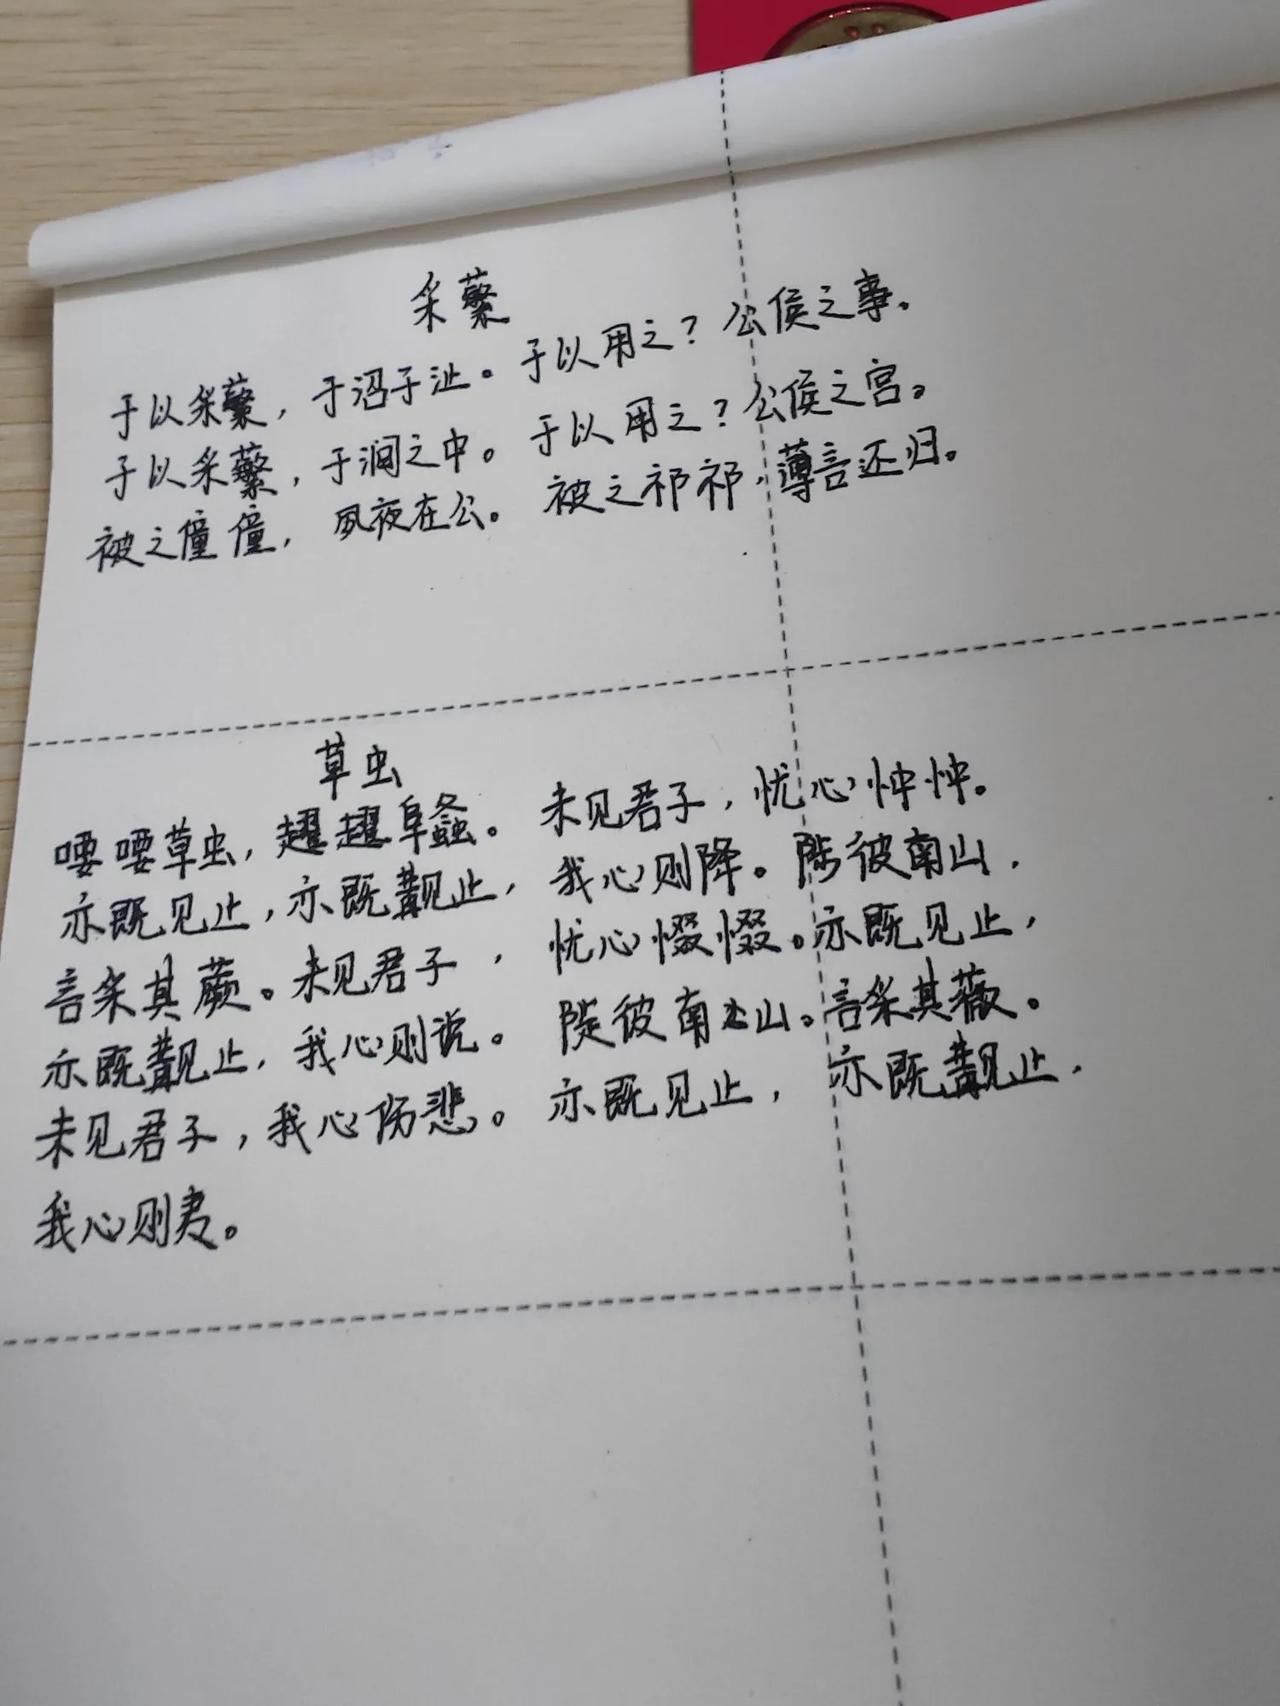 采蘩
于以采蘩，于沼于沚。于以用之？公侯之事。
于以采蘩，于涧之中。于以用之？公侯之宫。
被之僮僮，夙夜在公。被之祁祁，薄言还归。
草虫
喓喓草虫，趯趯阜螽。未见君子，忧心忡忡。
亦既见止，亦既觏止，我心则降。陟彼南山，
言采其蕨。未见君子，忧心惙惙。亦既见止，
亦既觏止，我心则说。陟彼南山。言采其薇。
未见君子，我心伤悲。亦既见止，亦既觏止，
我心则夷。